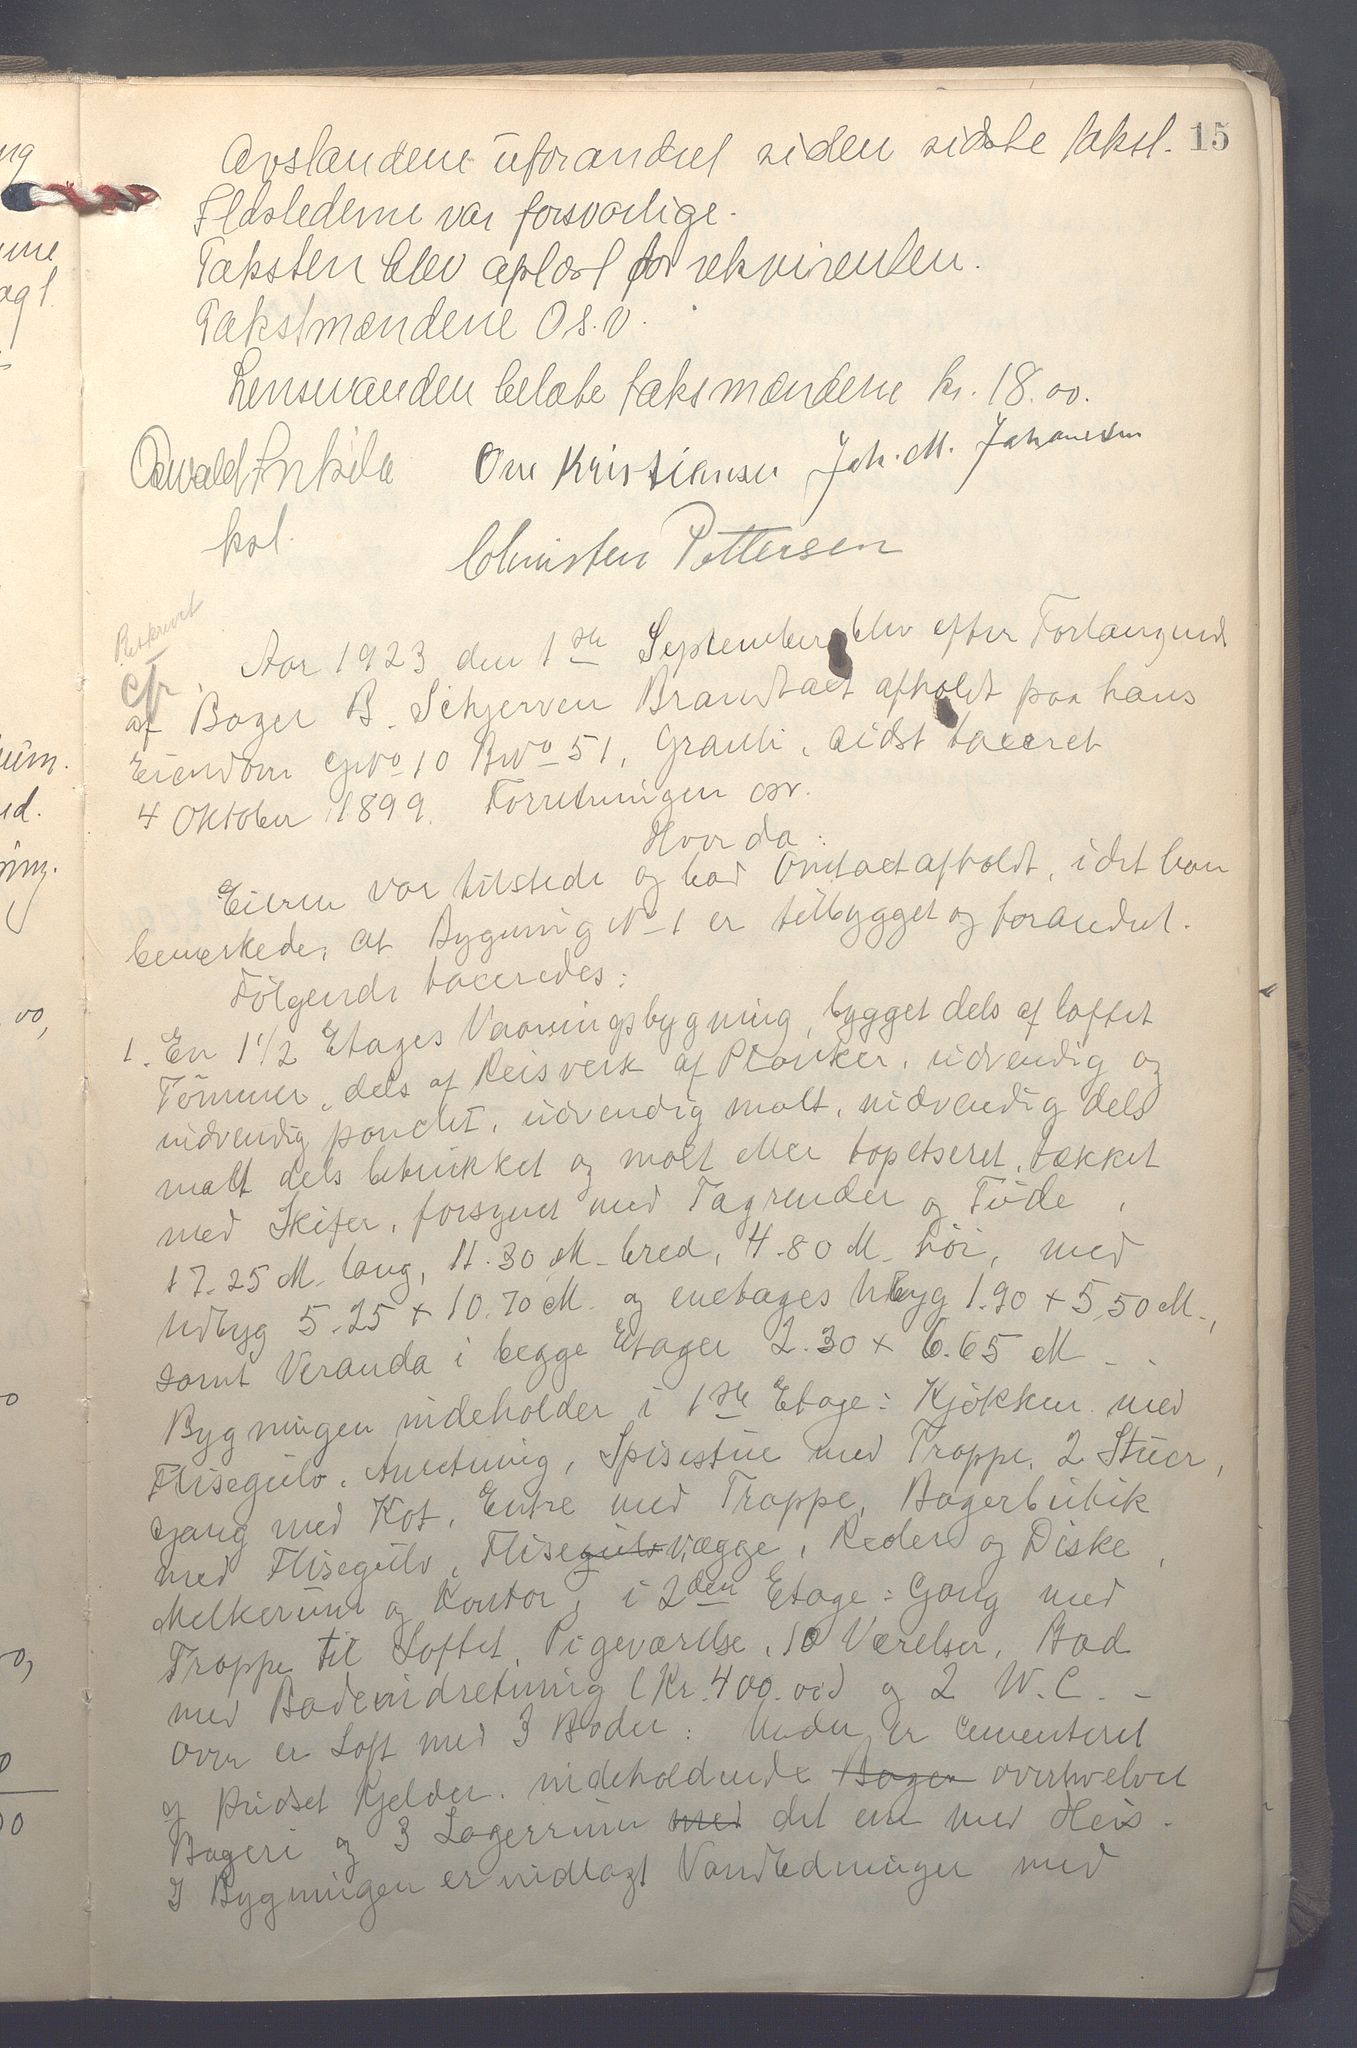 15
Avstandene uforandret siden sidste takst.
Ildstederne var forsvarlige.
Taksten blev oplæst for rekvirenten.
Takstmændene O.s.v.
Lensmanden betalte taksmændene kr. 18.00.
Oswald Kristiansen Joh. M. Johanesen
pol.
Christen Pettersen
Beskrevet
Cfr.
Aar 1923 den 1ste September blev efter Forlangende
af Bager B. Schjerven Brandtaxt afholdt paa hans
Eiendom Gno 10 Bno 51, Granli, sidst taxeret
4 Oktober 1899. Forretningen osv.
Hvorda:
Eieren var tilstede og bad Omtaxt afholdt, idet han
bemerkede, at Bygning No 1 er tilbygget og forandret.
Følgende taxeredes:
1. En 1 1/2 Etages Vaaningsbygning, bygget dels af laftet
Tømmer, dels af Reisverk af Planker, udvendig og
indvendig panelt, udvendig malt, indvendig dels
malt dels betrukket og malt eller tapetseret, tækket
med Skifer, forsynet med Tagrender og
17.25 M. lang, 11.30 M. bred, 4.80 M. høi, med
Udbyg 5.25 x 10.70 M. og enetages Udbyg 1.90 x 5.50 M.,
samt Veranda i begge Etager 2.30 x 6.65 M.
Bygningen indeholder i 1ste Etage: Kjøkken med
Flisegulv, Anretning, Spisestue med Trappe, 2 Stuer,
Gang med Kot, Entre med Trappe, Bagerbutik
med Flisegulv, Flisegulv vægge, Reoler og Diske,
Melkerum og Kontor, i 2den Etage: Gang med
Trappe til Loftet, Pigeværelse, 10 Værelser, Bad
med Badeindretning (Kr. 400.00) og 2 W.C. -
Over er Loft med 3 Boder: Under er cementeret
og pudset Kjelder indeholdende Bager overhvelvet
Bageri og 3 Lagerrum med det ene med Heis.
I Bygningen er indlagt Vandledninger med